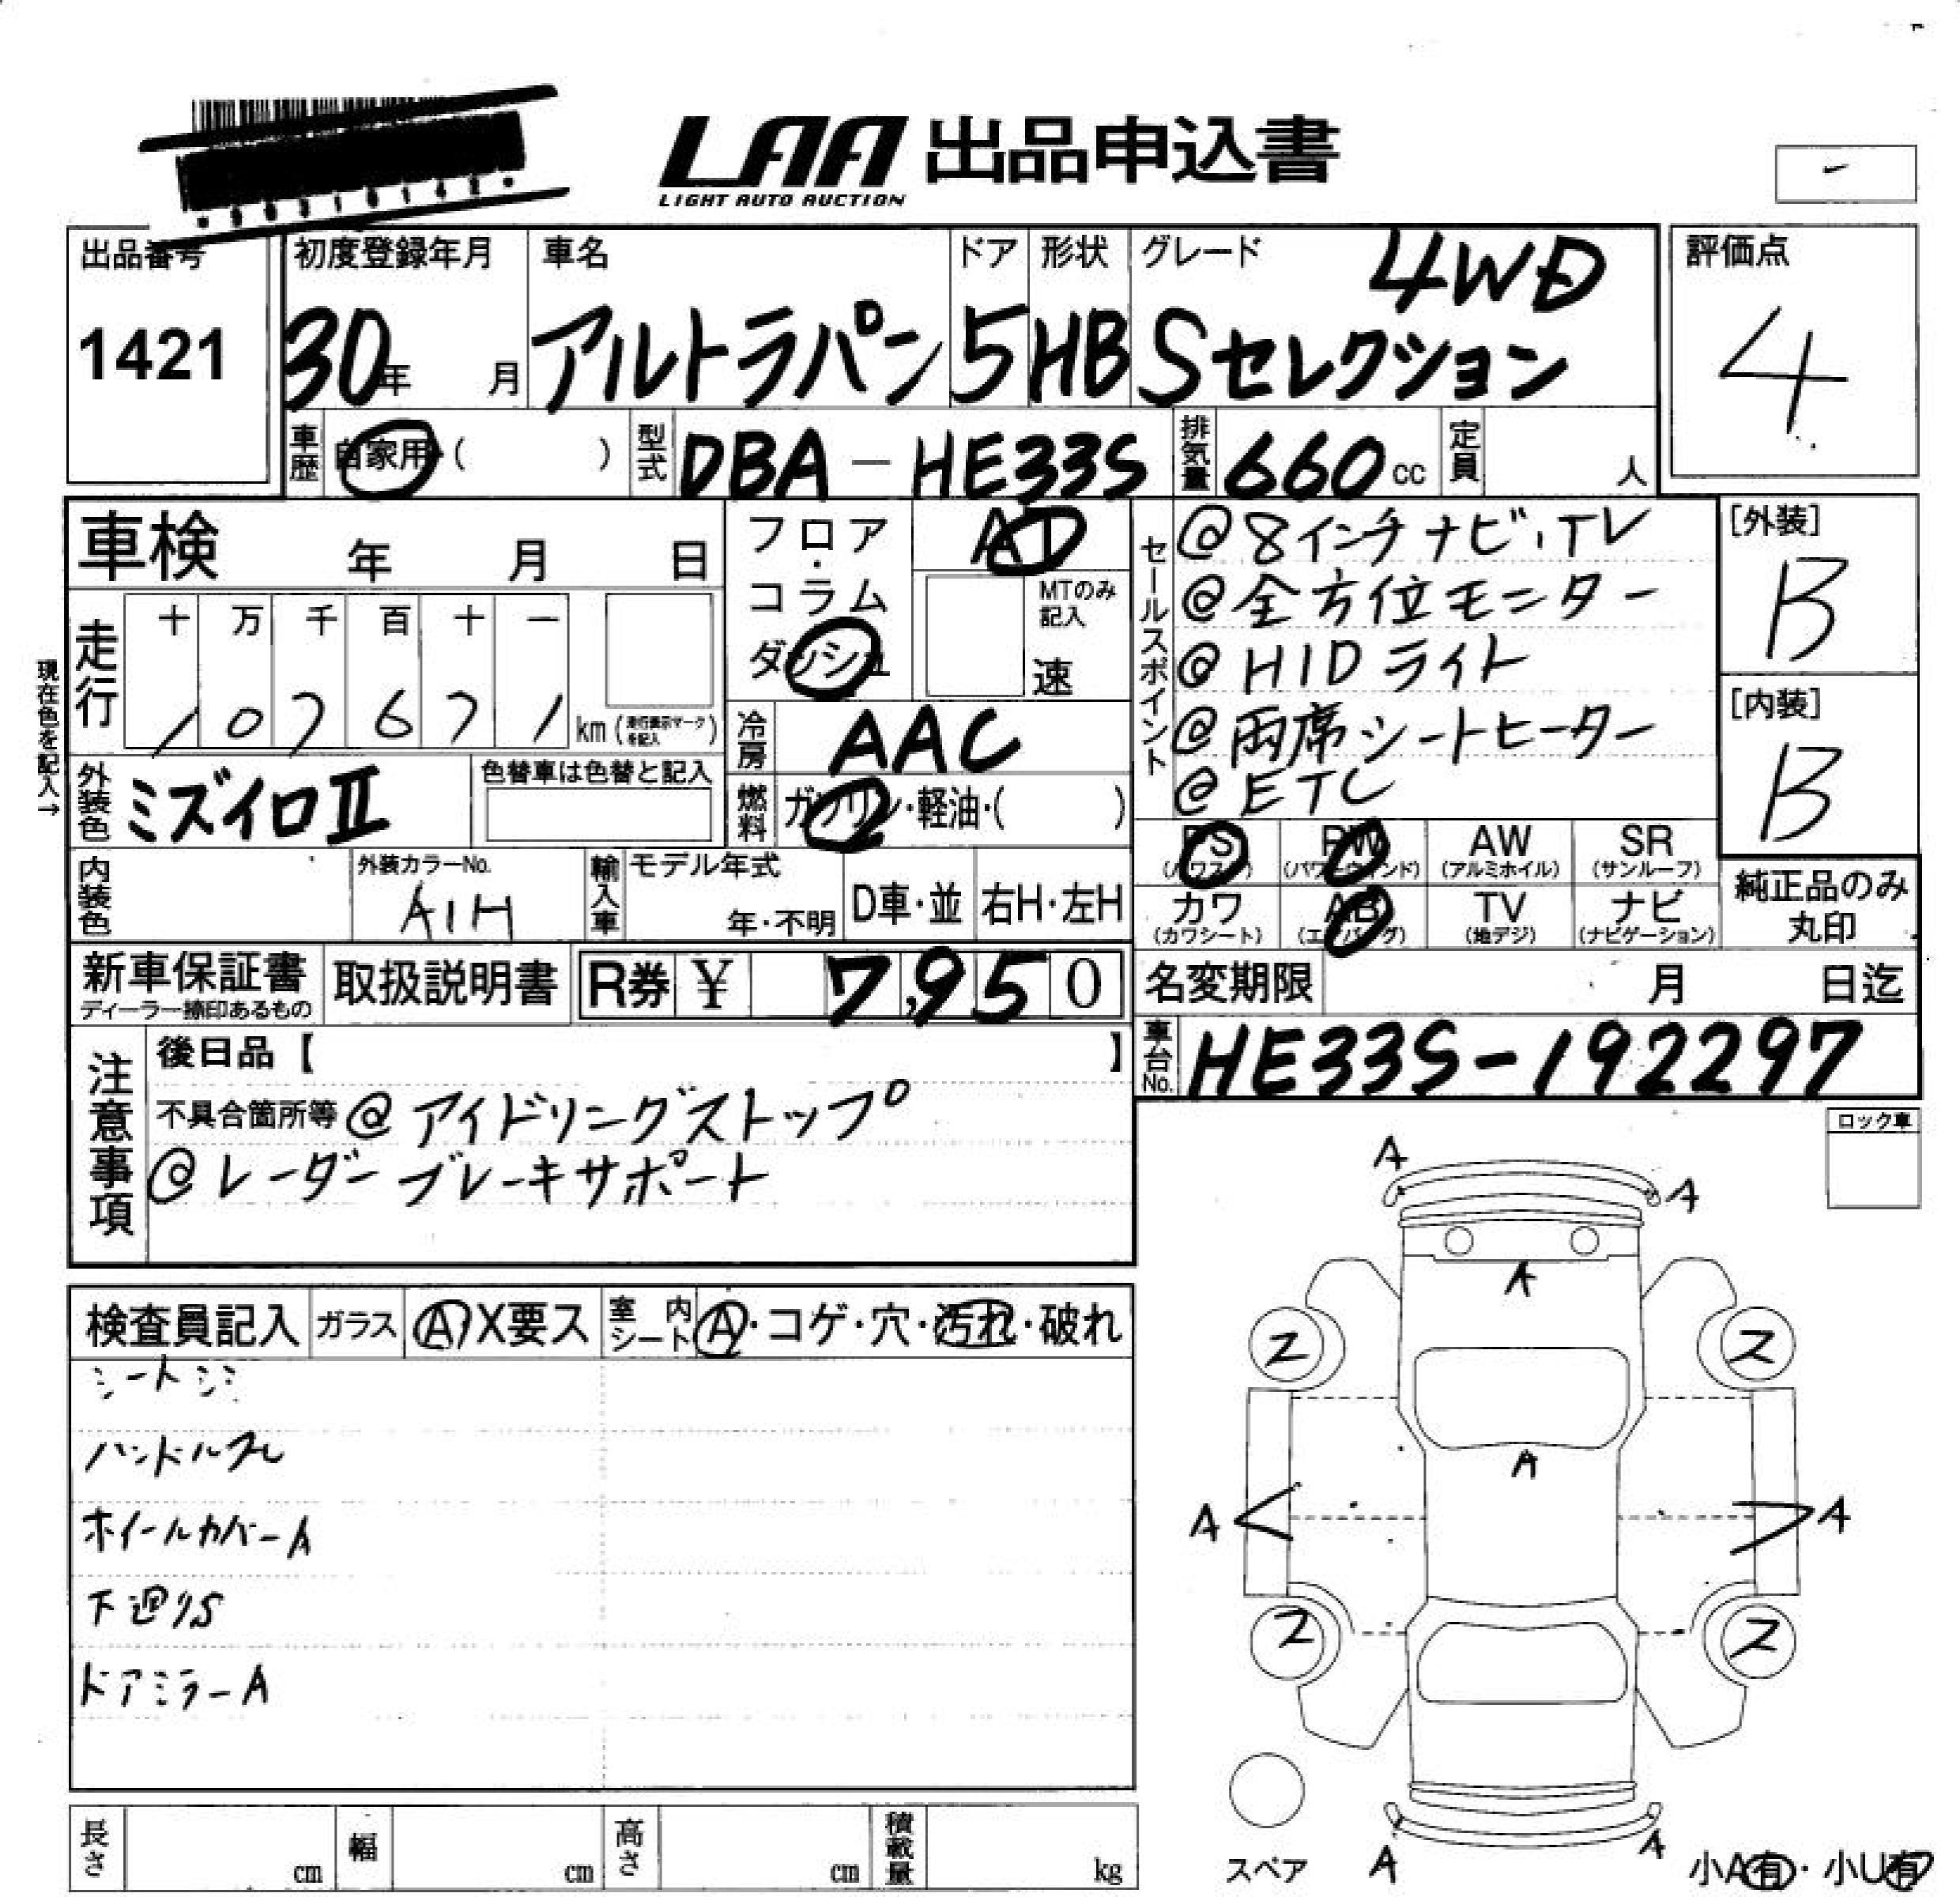 LAA 出品申込書
LIGHT AUTO AUCTION
出品番号
1421
初度登録年月
30年 月
車名
アルトラパン
ドア
5
形状
HB
グレード
4WD
Sセレクション
評価点
4
車歴 自家用・( )
型式 DBA-HE33S
排気量 660cc
定員 人
車検 年 月 日
フロア・コラム
ダッシュ
AT
MTのみ記入
速
現在色を記入→
走行 十 万 千 百 十 一
1 0 7 6 7 1 km (走行表示マークを記入)
冷房 AAC
外装色 ミズイロⅡ
色替車は色替と記入
燃料 ガソリン・軽油・( )
内装色
外装カラーNo.
A1H
輸入車 モデル年式
年・不明
D車・並
右H・左H
セールスポイント
@8インチナビ、TV
@全方位モニター
@HIDライト
@両席シートヒーター
@ETC
[外装]
B
[内装]
B
PS (パワステ)
PW (パワーウインド)
AW (アルミホイル)
SR (サンルーフ)
カワ (カワシート)
AB (エアバッグ)
TV (地デジ)
ナビ (ナビゲーション)
純正品のみ
丸印
新車保証書
ディーラー捺印あるもの
取扱説明書
R券 ¥ 7,950
名変期限 月 日迄
車台No. HE33S-192297
注意事項
後日品【 】
不具合箇所等 @アイドリングストップ
@レーダーブレーキサポート
ロック車
検査員記入
ガラス A X要ス
室内シート A・コゲ・穴・汚れ・破れ
シートシミ
ハンドルスレ
ホイールカバーA
下廻りS
ドアミラーA
A
A
A
ス
ス
A
A
A
ス
ス
A
A
スペア
小A有・小U有
長さ cm
幅 cm
高さ cm
積載量 kg